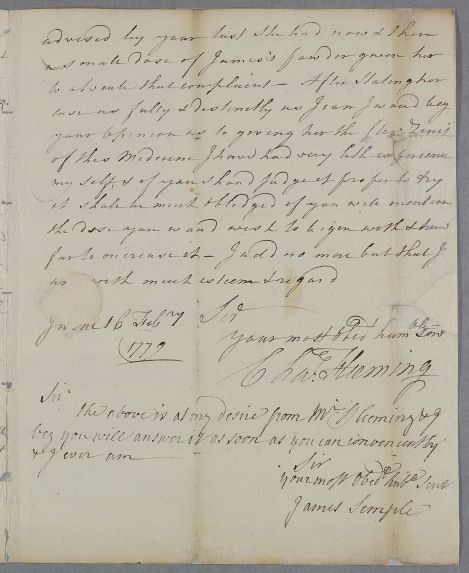 advised by your last she had now & then
a small dose of James's powder given her
to aleviate that complaint — After stating her
case as fully & distinctly as I can I woud beg
your opinion as to giving her the flor: Zinci
of this Medicine I have had very little experience
my self, & if you shoud judge it proper to try
it shall be much obledged if you will mention
the dose you woud wish to begin with & how
far to increase it — I add no more but that I
am with much esteem & regard
Sir
Irvine 16 Febry
1779
your most Obedt humble Servt
Chas. Fleming
Sir
the above is at my desire from Mr Fleming & I
beg you will answer it as soon as you can conveniently
& I ever am
Sir
your most Obedt humble Servt
James Semple